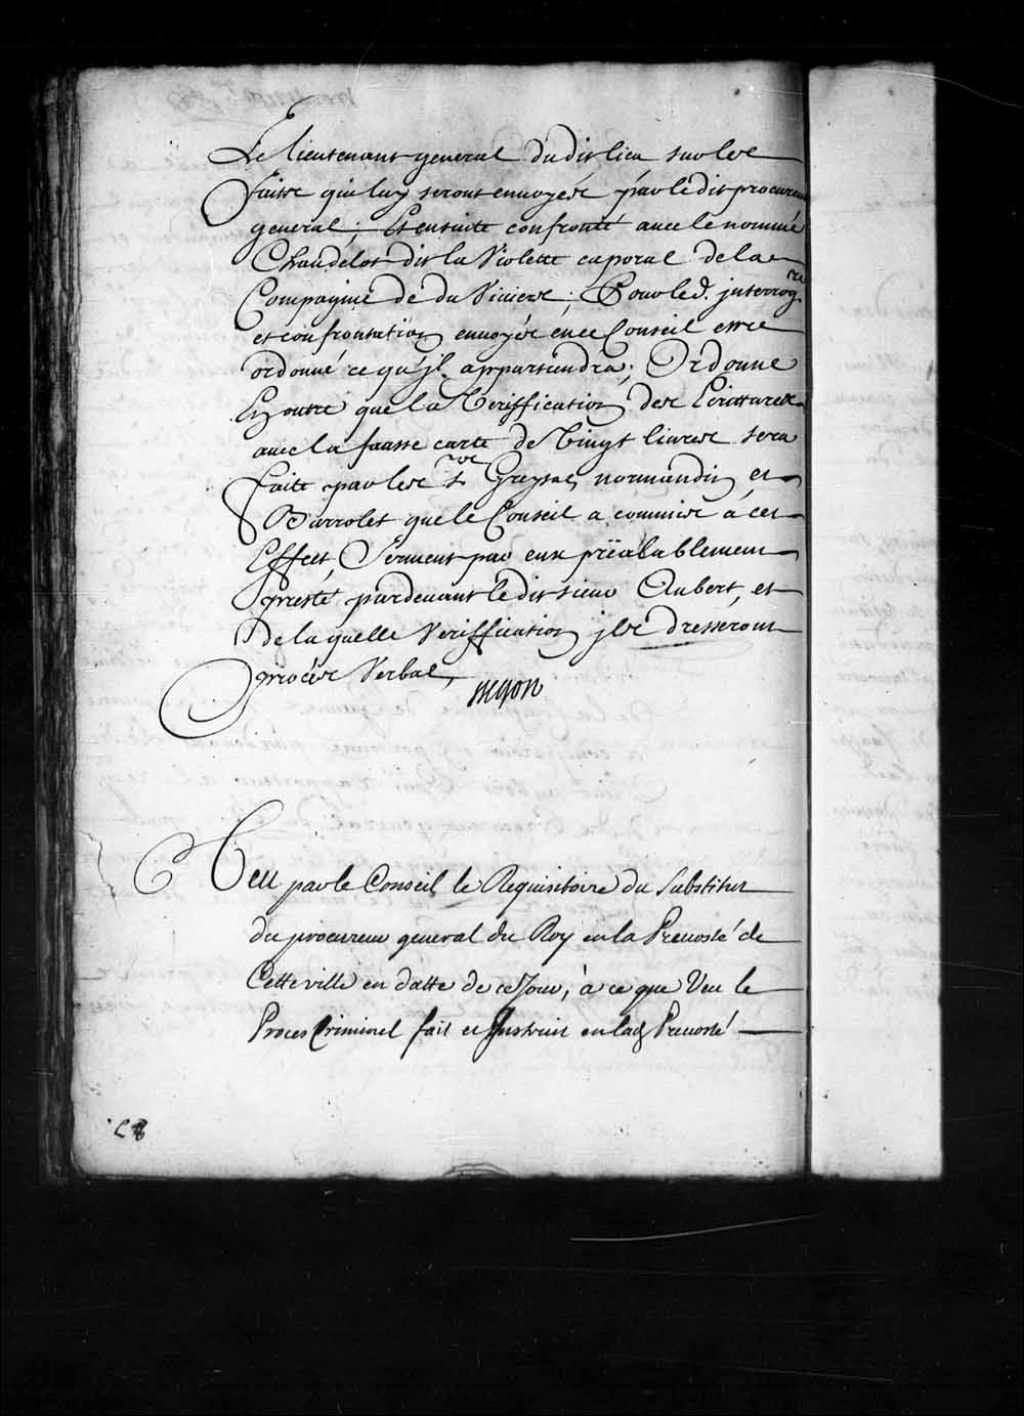 Le lieutenant general dudit lieu sur les
faits qui luy seront envoyés par le dit procureur
general; Et ensuite confronté avec le nommé
Chaudelot dit la Violette caporal de la
Compagnie de du Vivier; Pour led. interrog.re
et confrontation envoyés en ce Conseil estre
ordonné ce qu'il appartiendra; Ordonne
En outre que la Veriffication des Ecritures
avec la fausse carte de Vingt livres sera
faite par les Srs Greysac, normandin et
Barrolet que le Conseil a commis à cet
Effect, Serment par eux prëalablement
presté pardevant le dit sieur Aubert, et
de laquelle Veriffication ils dresseront
procès Verbal,
Begon
Veu par le Conseil le Requisitoire du Substitut
du procureur general du Roy en la Prevosté de
Cette ville en datte de ce Jour, à ce que Veu le
Proces Criminel fait et Instruit en lad Prevosté